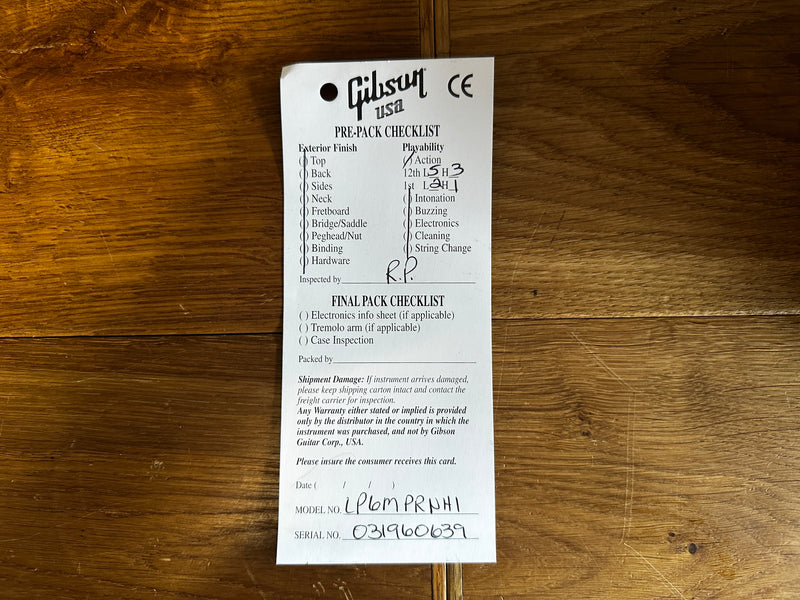 Gibson CE
usa
PRE-PACK CHECKLIST
Exterior Finish Playability
( ) Top ( ) Action
( ) Back 12th L 5 H 3
( ) Sides 1st L 2 H 1
( ) Neck ( ) Intonation
( ) Fretboard ( ) Buzzing
( ) Bridge/Saddle ( ) Electronics
( ) Peghead/Nut ( ) Cleaning
( ) Binding ( ) String Change
( ) Hardware
Inspected by R.P.
FINAL PACK CHECKLIST
( ) Electronics info sheet (if applicable)
( ) Tremolo arm (if applicable)
( ) Case Inspection
Packed by
Shipment Damage: If instrument arrives damaged,
please keep shipping carton intact and contact the
freight carrier for inspection.
Any Warranty either stated or implied is provided
only by the distributor in the country in which the
instrument was purchased, and not by Gibson
Guitar Corp., USA.
Please insure the consumer receives this card.
Date ( / / )
MODEL NO. LP6MPRNH1
SERIAL NO. 031960639